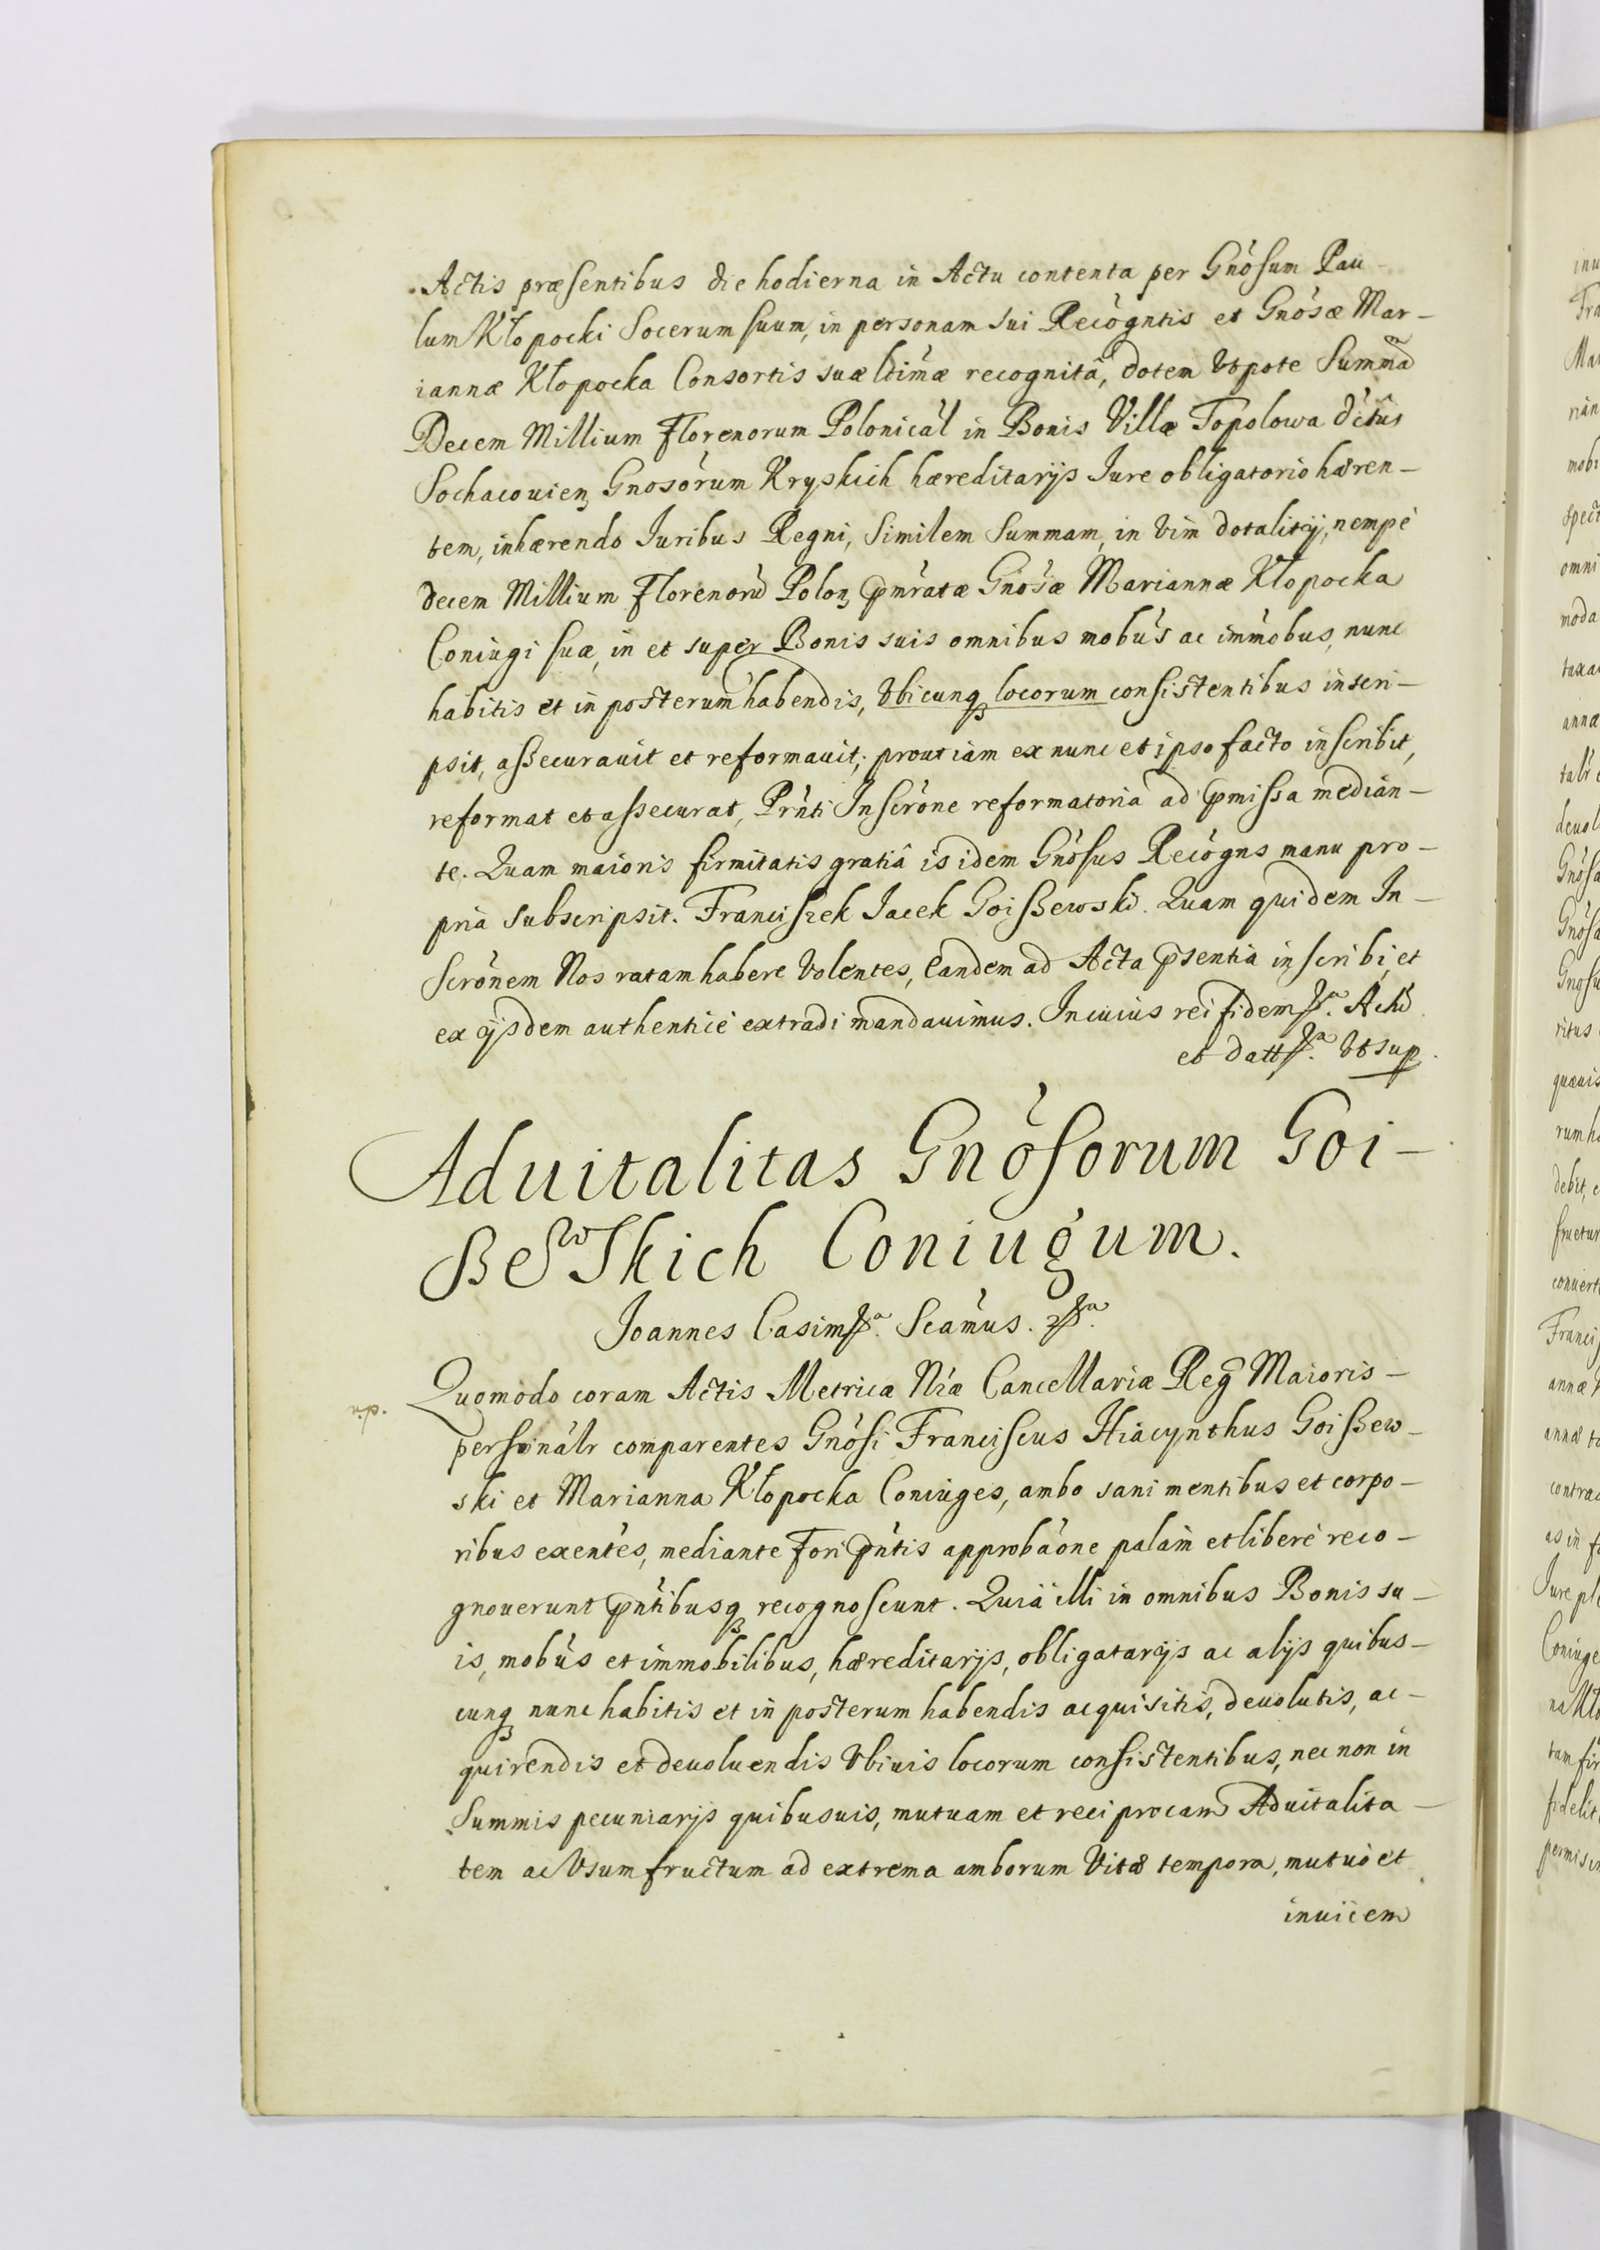 Actis præsentibus die hodierna in Actu contenta per Gnósum Pau-
lum Kłopocki Socerum suum, in personam sui Recógntis et Gnósæ Mar-
iannæ Kłopocka Consortis suæ ldimæ recognitâ, dotem Vtpote Summã
Decem Millium Florenorum Polonicál in Bonis Villæ Topolowa dctûs
Sochacouien Gnosórum Kryskich hæreditarijs Iure obligatorio hæren-
tem, inhærendo Iuribus Regni, Similem Summam, in Vim dotalitij, nempè
decem Millium Florenorũ Polon, pmratæ Gnósæ Mariannæ Kłopocka
Coniugi suæ, in et super Bonis suis omnibus mobús ac immobus, nunc
habitis et in posterum habendis, Vbicunq locorum consistentibus inscri-
psit, assecurauit et reformauit; prout iam ex nunc et ipso facto inscribit,
reformat et assecurat, Prnti Inscrône reformatoria ad pmissa median-
te. Quam maioris firmitatis gratiâ is idem Gnósus Recógns manu pro-
pria subscripsit. Franciszek Jacek Goiszewski. Quam quidem In-
scrônem Nos ratam habere Volentes, Eandem ad Acta psentia inscribi, et
ex ijsdem authenticè extradi mandauimus. In cuius rei fidem &ª. Actũ
et datt &ª. Vt sup.
Aduitalitas Gnósorum Goi-
szewskich Coniugum.
Joannes Casim &ª. Scámus. &ª.
Quomodo coram Actis Metrica Nræ Cancellariæ Reg Maioris-
personálr comparentes Gnósi Franciscus Hiacynthus Goiszew-
ski et Marianna Kłopocka Coniuges, ambo sani mentibus et corpo-
ribus exentes, mediante Fori pntis approbâone palàm et liberè reco-
gnouerunt pntibusq recognoscunt. Quià illi in omnibus Bonis su-
is, mobús et immobilibus, hæreditarijs, obligatarijs ac alijs quibus-
cunq nunc habitis et in posterum habendis acquisitis, deuolutis, ac-
quirendis et deuoluendis Vbiuis locorum consistentibus, nec non in
Summis pecuniarijs quibusuis, mutuam et reciprocam Aduitalita-
tem ac Vsumfructum ad extrema amborum Vitæ tempora, mutuò et
inuicem